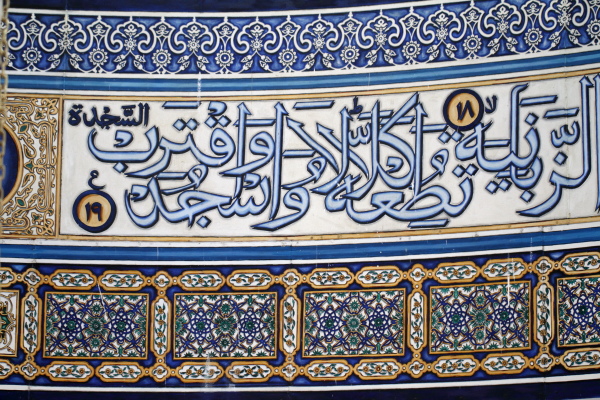 الزَّبَانِيَةَ ١٨ لا كَلَّا لَا تُطِعْهُ وَاسْجُدْ وَاقْتَرِبْ السَّجْدَة ع ١٩